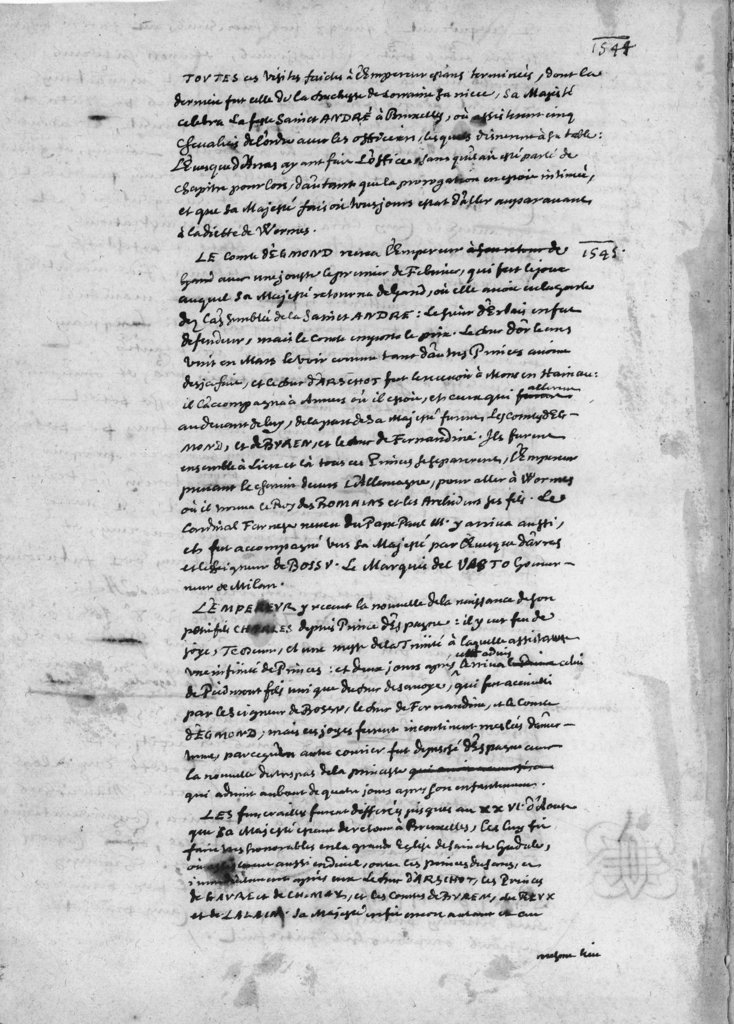 1544
TOVTES ces visites faictes à l'Empereur estans terminées, dont la
derniere fut celle de la Duchesse de Lorraine sa niece, sa Majesté
celebra la feste Sainct ANDRÉ à Bruxelles, où assisterent cinq
Chevaliers de l'ordre avec les officiers, lesquels disnerent à sa table:
L'Evesque d'Arras ayant fait l'office sans qu'il ait esté parlé de
chapitre pour lors, d'autant que la prorogation en estoit intimée,
et que sa Majesté faisoit tousjours estat d'aller auparavant
à la diette de Wormes.
LE Comte d'EGMOND receut l'Empereur à son retour de 1545.
Gand avec une jouste le premier de Febvrier, qui fut le jour
auquel sa Majesté retourna de Gand, où elle avoit
de l'assemblée de la Sainct ANDRÉ: Le sieur d'Erbais en fut
defendeur, mais le Comte emporta le prix. Le Duc d'Orleans
vint en Mars le voir comme tant d'autres Princes avoient
desja faict, et le Duc d'ARSCHOT fut le recevoir à Mons en Hainau:
il l'accompagna à Anvers où il estoit, et ceux qui allerent
au devant de luy, de la part de sa Majesté furent, les Comtes d'EG-
MOND, et de BVREN, et le Duc de Fernandine. Ils furent
ensemble à Liere et là tous ces Princes se separerent, l'Empereur
prenant le chemin devers l'Allemagne, pour aller à Wormes
où il trouva le Roy des ROMAINS et les Archiducs ses fils. Le
Cardinal Farnese neveu du Pape Paul III. y arriva aussi,
et fut accompagné vers sa Majesté par l'Evesque d'Arras
et le Seigneur de BOSSV. Le Marquis del VASTO Gouver-
neur de Milan.
L'EMPEREVR y receut la nouvelle de la naissance de son
petit fils CHARLES depuis Prince d'Espagne: il y eut feu de
joye, Te Deum, et une messe de la Trinité à laquelle assisterent
une infinité de Princes: et deux jours apres arriva celui
de Piedmont fils unique du Duc de Savoye, qui fut accueilli
par le Seigneur de BOSSV, le Duc de Fernandine, et le Comte
d'EGMOND, mais ces joyes furent incontinent meslées d'amer-
tume, parcequ'un autre courier fut depesché d'Espagne avec
la nouvelle du trespas de la princesse
qui advint au bout de quatre jours apres son enfantement.
LES funerailles furent differées jusques au XXVI. d'Aoust
que sa Majesté estant de retour à Bruxelles, les luy fit
faire tres honorables en la grande Eglise de Saincte Gudule,
où aussi en dueil, outre les princes du sang, et
immediatement après eux le Duc d'ARSCHOT, les Princes
de GAVRE et de CHIMAY, et les Comtes de BVREN, du REVX
et de LALAIN. Sa Majesté en fit encor autant et au
mesme lieu